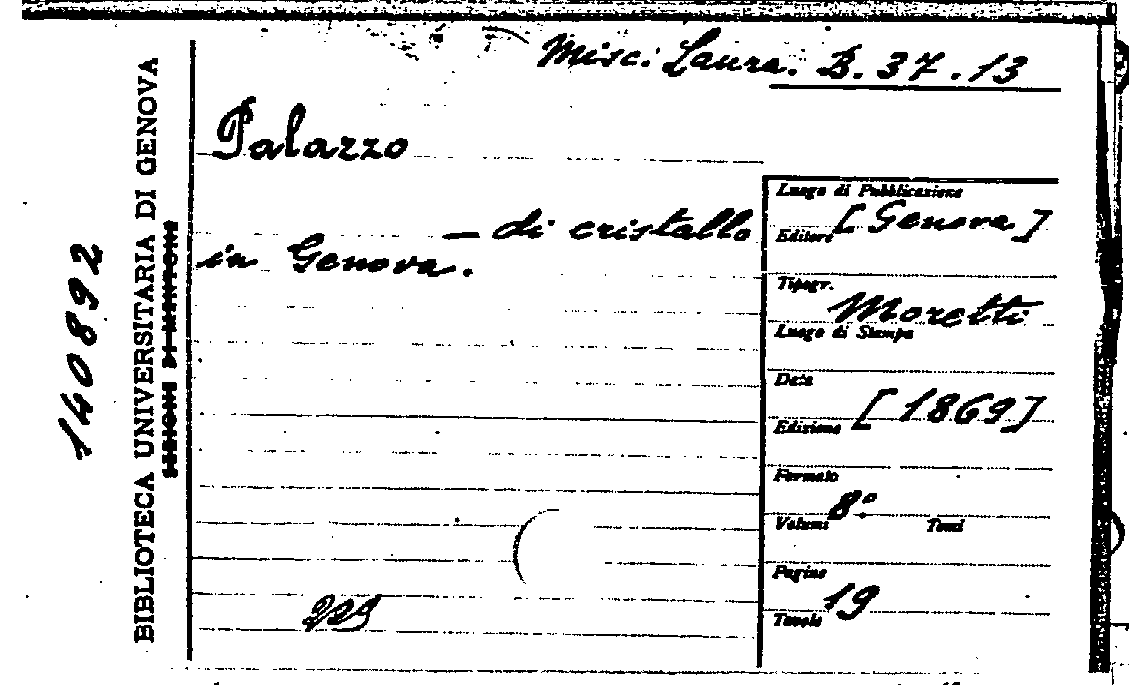 Misc. Laura. B. 37. 13
Palazzo
— di cristallo
in Genova.
Luogo di Pubblicazione
[Genova]
Editore
Tipogr.
Moretti
Luogo di Stampa
Data
[1869]
Edizione
Formato
8°
Volumi Tomi
Pagine
19
Tavole
BIBLIOTECA UNIVERSITARIA DI GENOVA
140892